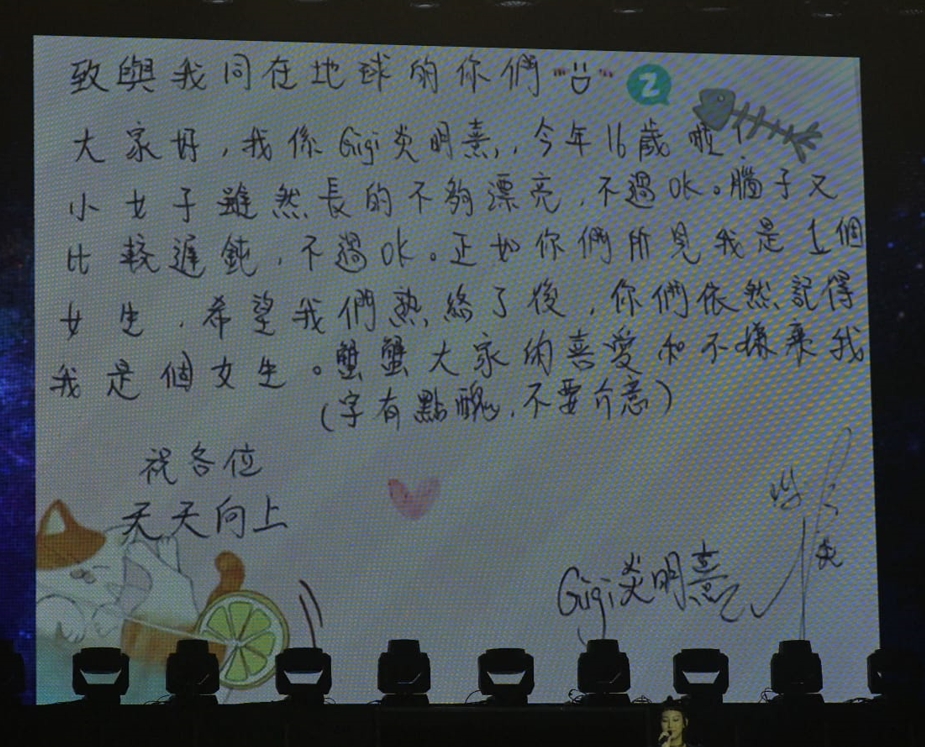 致與我同在地球的你們
Z
大家好，我係Gigi炎明熹，今年16歲啦！
小女子雖然長的不夠漂亮，不過OK。腦子又
比較遲鈍，不過OK。正如你們所見我是1個
女生，希望我們熟絡了後，你們依然記得
我是個女生。蟹蟹大家的喜愛和不嫌棄我
(字有點醜，不要介意)
祝各位
天天向上
Gigi炎明熹